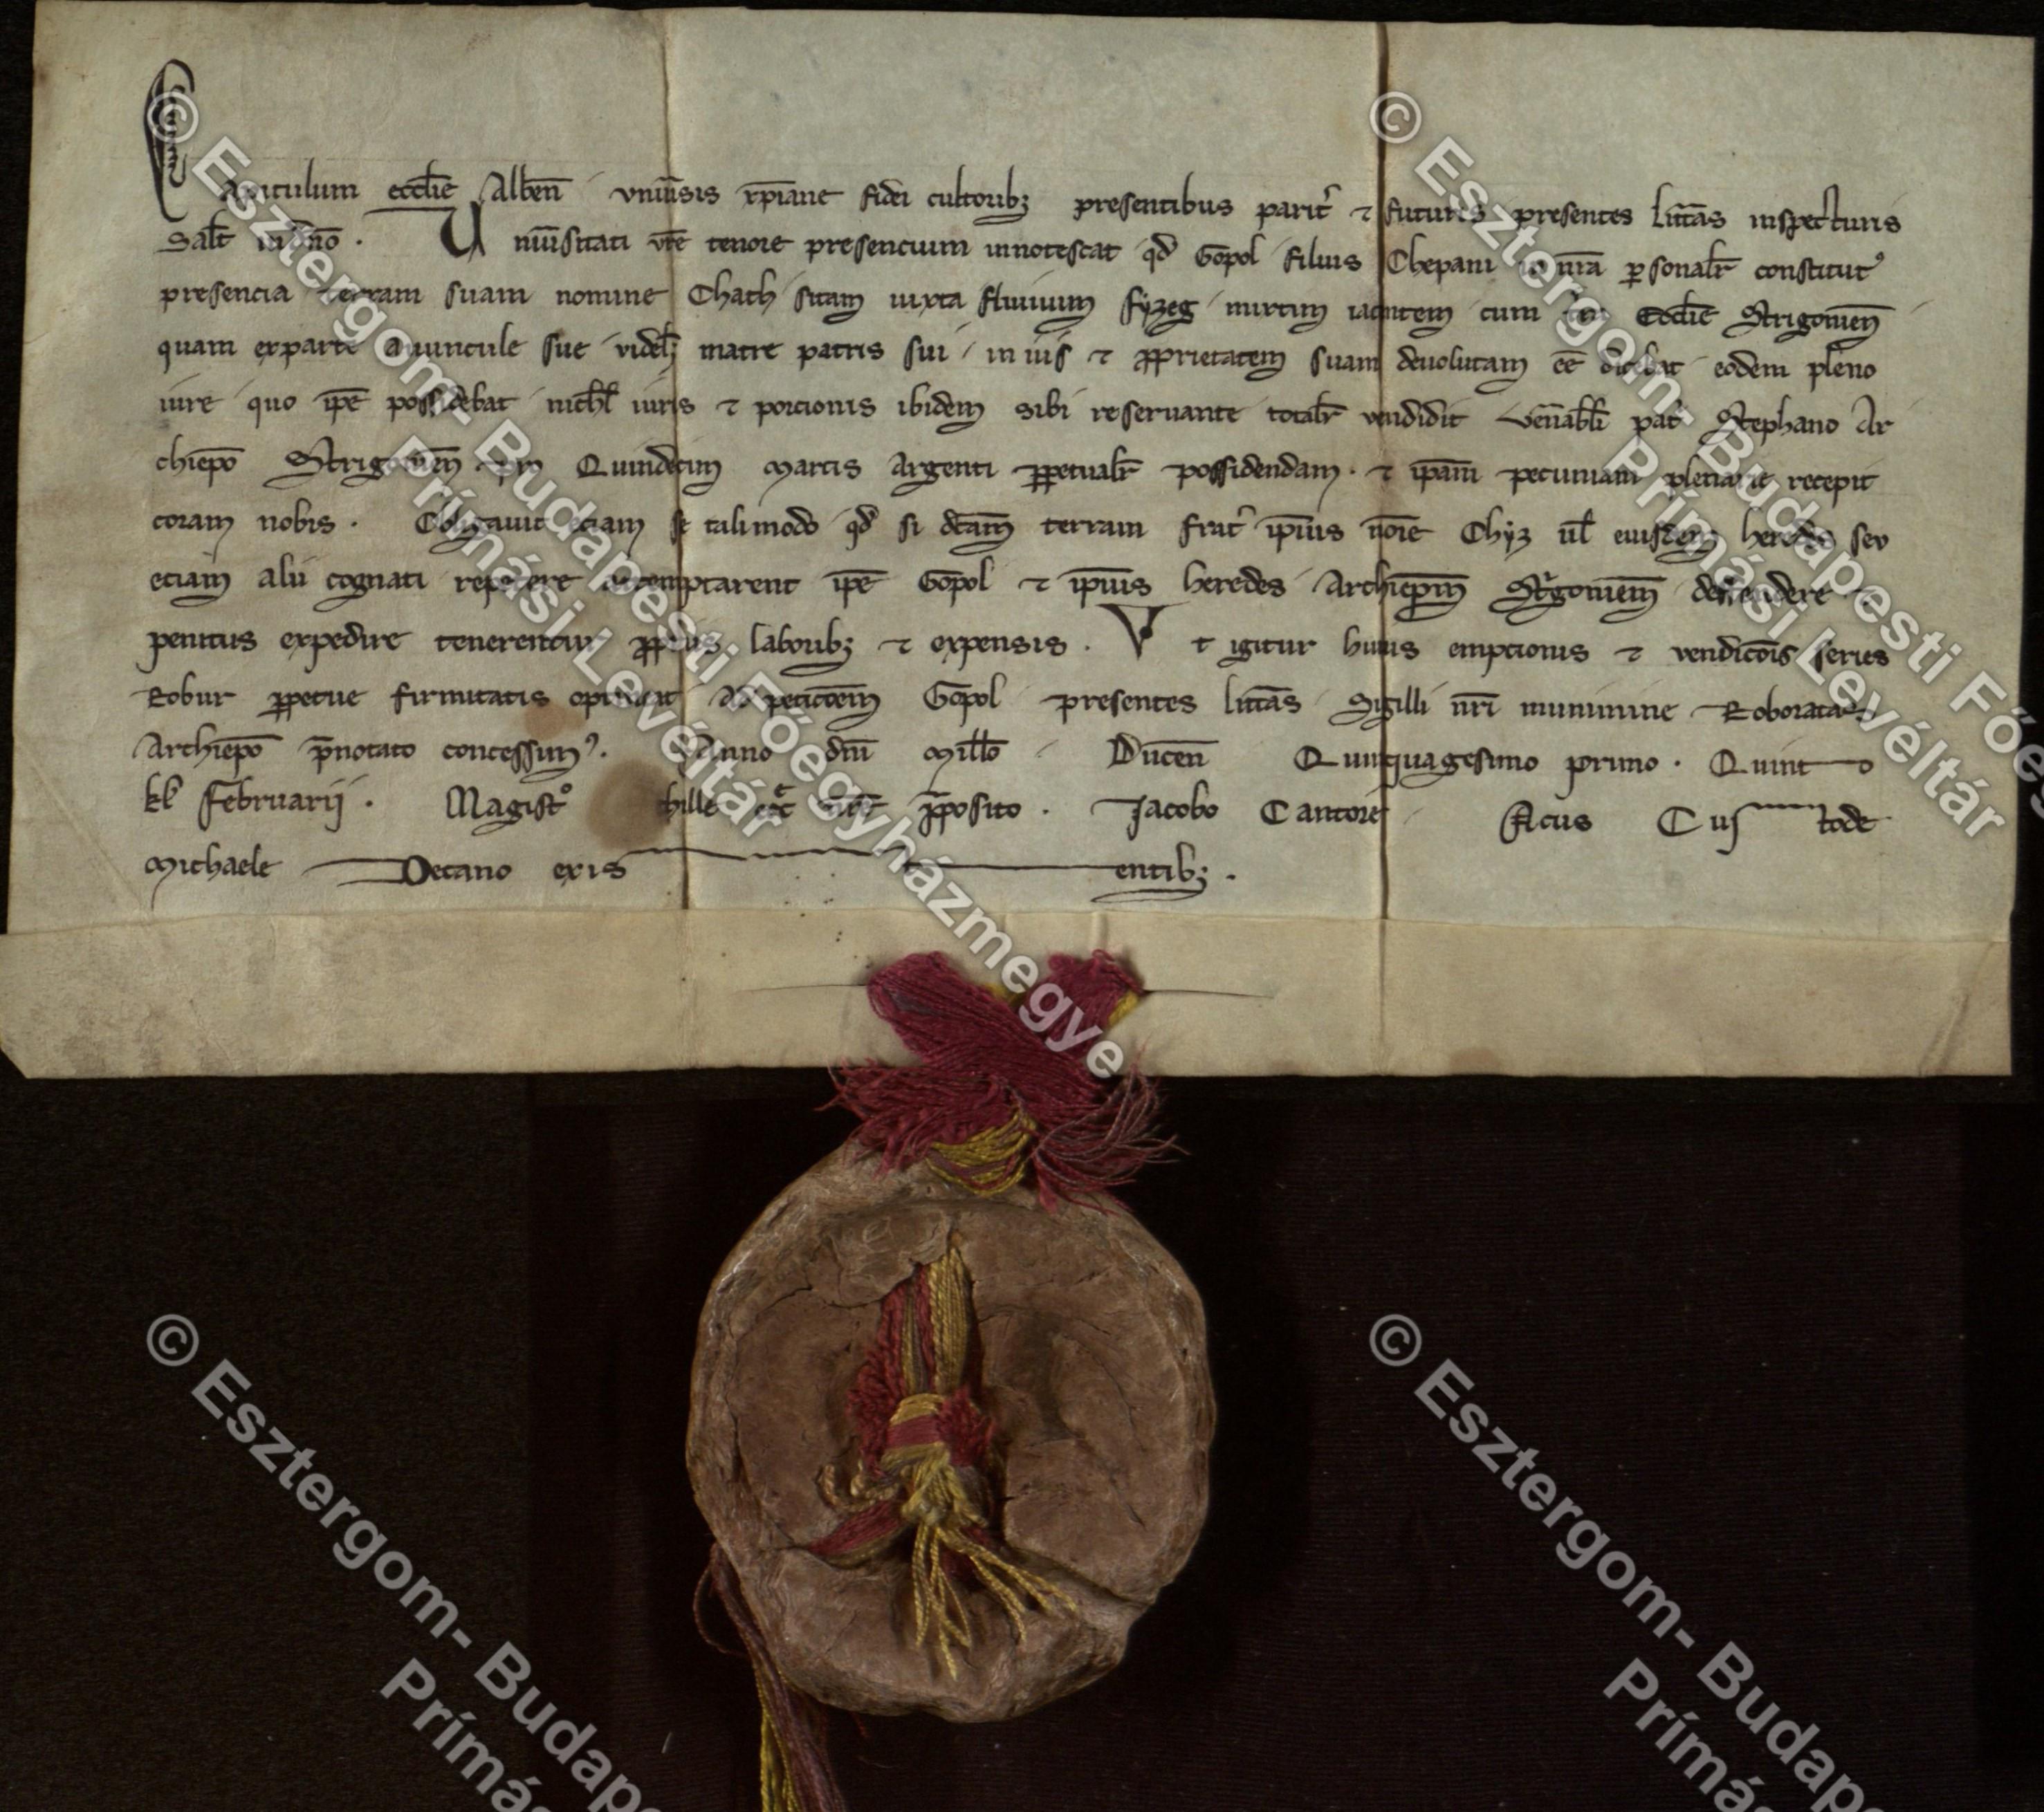 Capitulum ecclīe Albeñ vniu̅sis xp̅iane fidei cultoribꝫ presentibus parit̉ ⁊ futuris presentes litt̅as inspecturis
Sal̅t in dn̅o . Uniu̅sitati vr̅e tenore presencium innotescat qd̅ Gopol filius Chepani in nr̅a ꝑsonalr̅ constitutꝰ
presencia terram suam nomine Chath sitam iuxta fluuium fyzeg mixtim iacentem cum Ecclīe Strigonien̅
quam ex parte auuncule sue videlꝫ matre patris sui in ius ⁊ ꝓprietatem suam deuolutam ee̅ dicebat eodem pleno
iure quo ip̅e possidebat nichl̅ iuris ⁊ porcionis ibidem sibi reseruante totalr̅ vendidit ven̅abli̅ pat̅ Stephano Ar
chiep̅o Strigonien̅ Quindecim marcis argenti ꝑpetualr̅ possidendam . ⁊ ip̅am pecuniam plenarie recepit
coram nobis . Obligauit eciam se tali modo qd̅ si dc̅am terram frat̉ ip̅ius no̅ie Chyz ul̅ eiusdem heredes seu
eciam alii cognati repetere attemptarent ip̅e Gopol ⁊ ip̅ius heredes Archiep̅m St̉gonien̅ deffendere ⁊
penitus expedire tenerentur ꝓpriis laboribꝫ ⁊ expensis . Vt igitur huius empcionis ⁊ vendico̅is series
Robur ꝑpetue firmitatis optineat Ad petic̅oem Gopol presentes litt̅as Sigilli nr̅i munimine Roboratas
Archiep̅o p̅notato concessimꝰ . Anno dn̅i mill̅o Ducen̅ Quinquagesimo primo . Quinto
kl̅ februarij . Magist̊ nr̅e p̅posito . Jacobo Cantore Custode
michaele Decano existentibꝫ .
© Esztergom- Budapesti Főegyházmegye
Prímási Levéltár
© Esztergom- Budapesti Főe
Prímási Levéltár
© Esztergom- Budap
Prímás
© Esztergom- Budap
Prímás